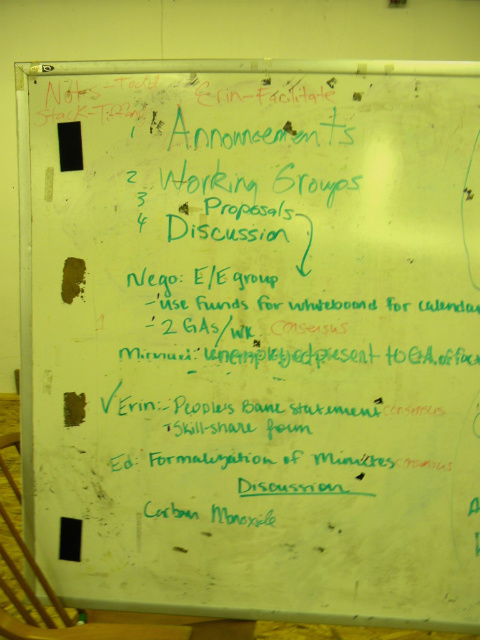 Notes-
Erin-Facilitate
Stack-
1 Announcements
2 Working Groups
3 Proposals
4 Discussion
Nego: E/E group
-use funds for whiteboard for calendar
-2 GAs/wk consensus
unemployed present to GA
✓Erin:-People's Bane statement consensus
-Skill-share form
Ed: Formalization of Minutes consensus
Discussion
Carbon Monoxide